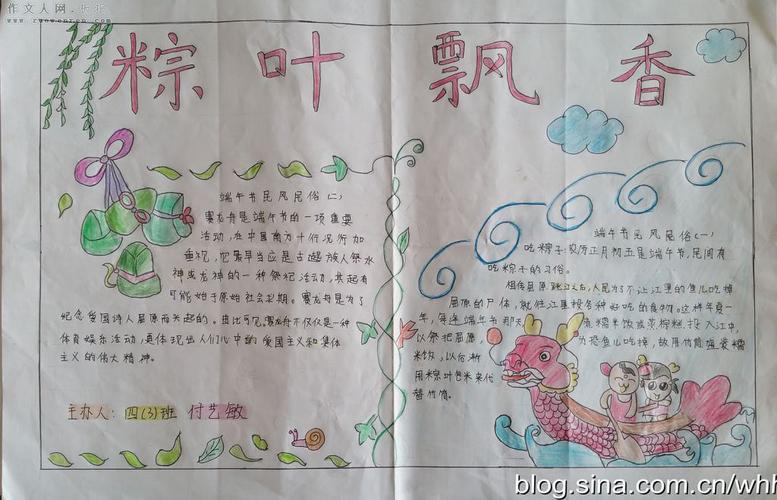 作文人网
粽叶飘香
端午节民风民俗(二)
赛龙舟是端午节的一项重要
活动,在中国南方十分流行
它最早当应是古越族人祭水
神或龙神的一种祭祀活动,其起有
可能始于原始社会末期。赛龙舟是为了
纪念爱国诗人屈原而兴起的。由此可见,赛龙舟不仅仅是一种
体育娱乐活动,更体现出人们心中的爱国主义和集体
主义的伟大精神。
主办人:四(3)班 付艺敏
端午节民风民俗(一)
吃粽子:农历正月初五是端午节,民间有
吃粽子的习俗。
相传屈原跳江以后,人民为了不让江里的鱼儿吃掉
屈原的尸体,就往江里投各种好吃的食物。这样年复一
年,每逢端午节那天 糯米饭或蒸粽糕投入江中,
以祭祀屈原, 为恐鱼儿吃掉,故用竹筒盛装糯
米饭,以后渐
用粽叶包米来代
替竹筒。
blog.sina.com.cn/whh